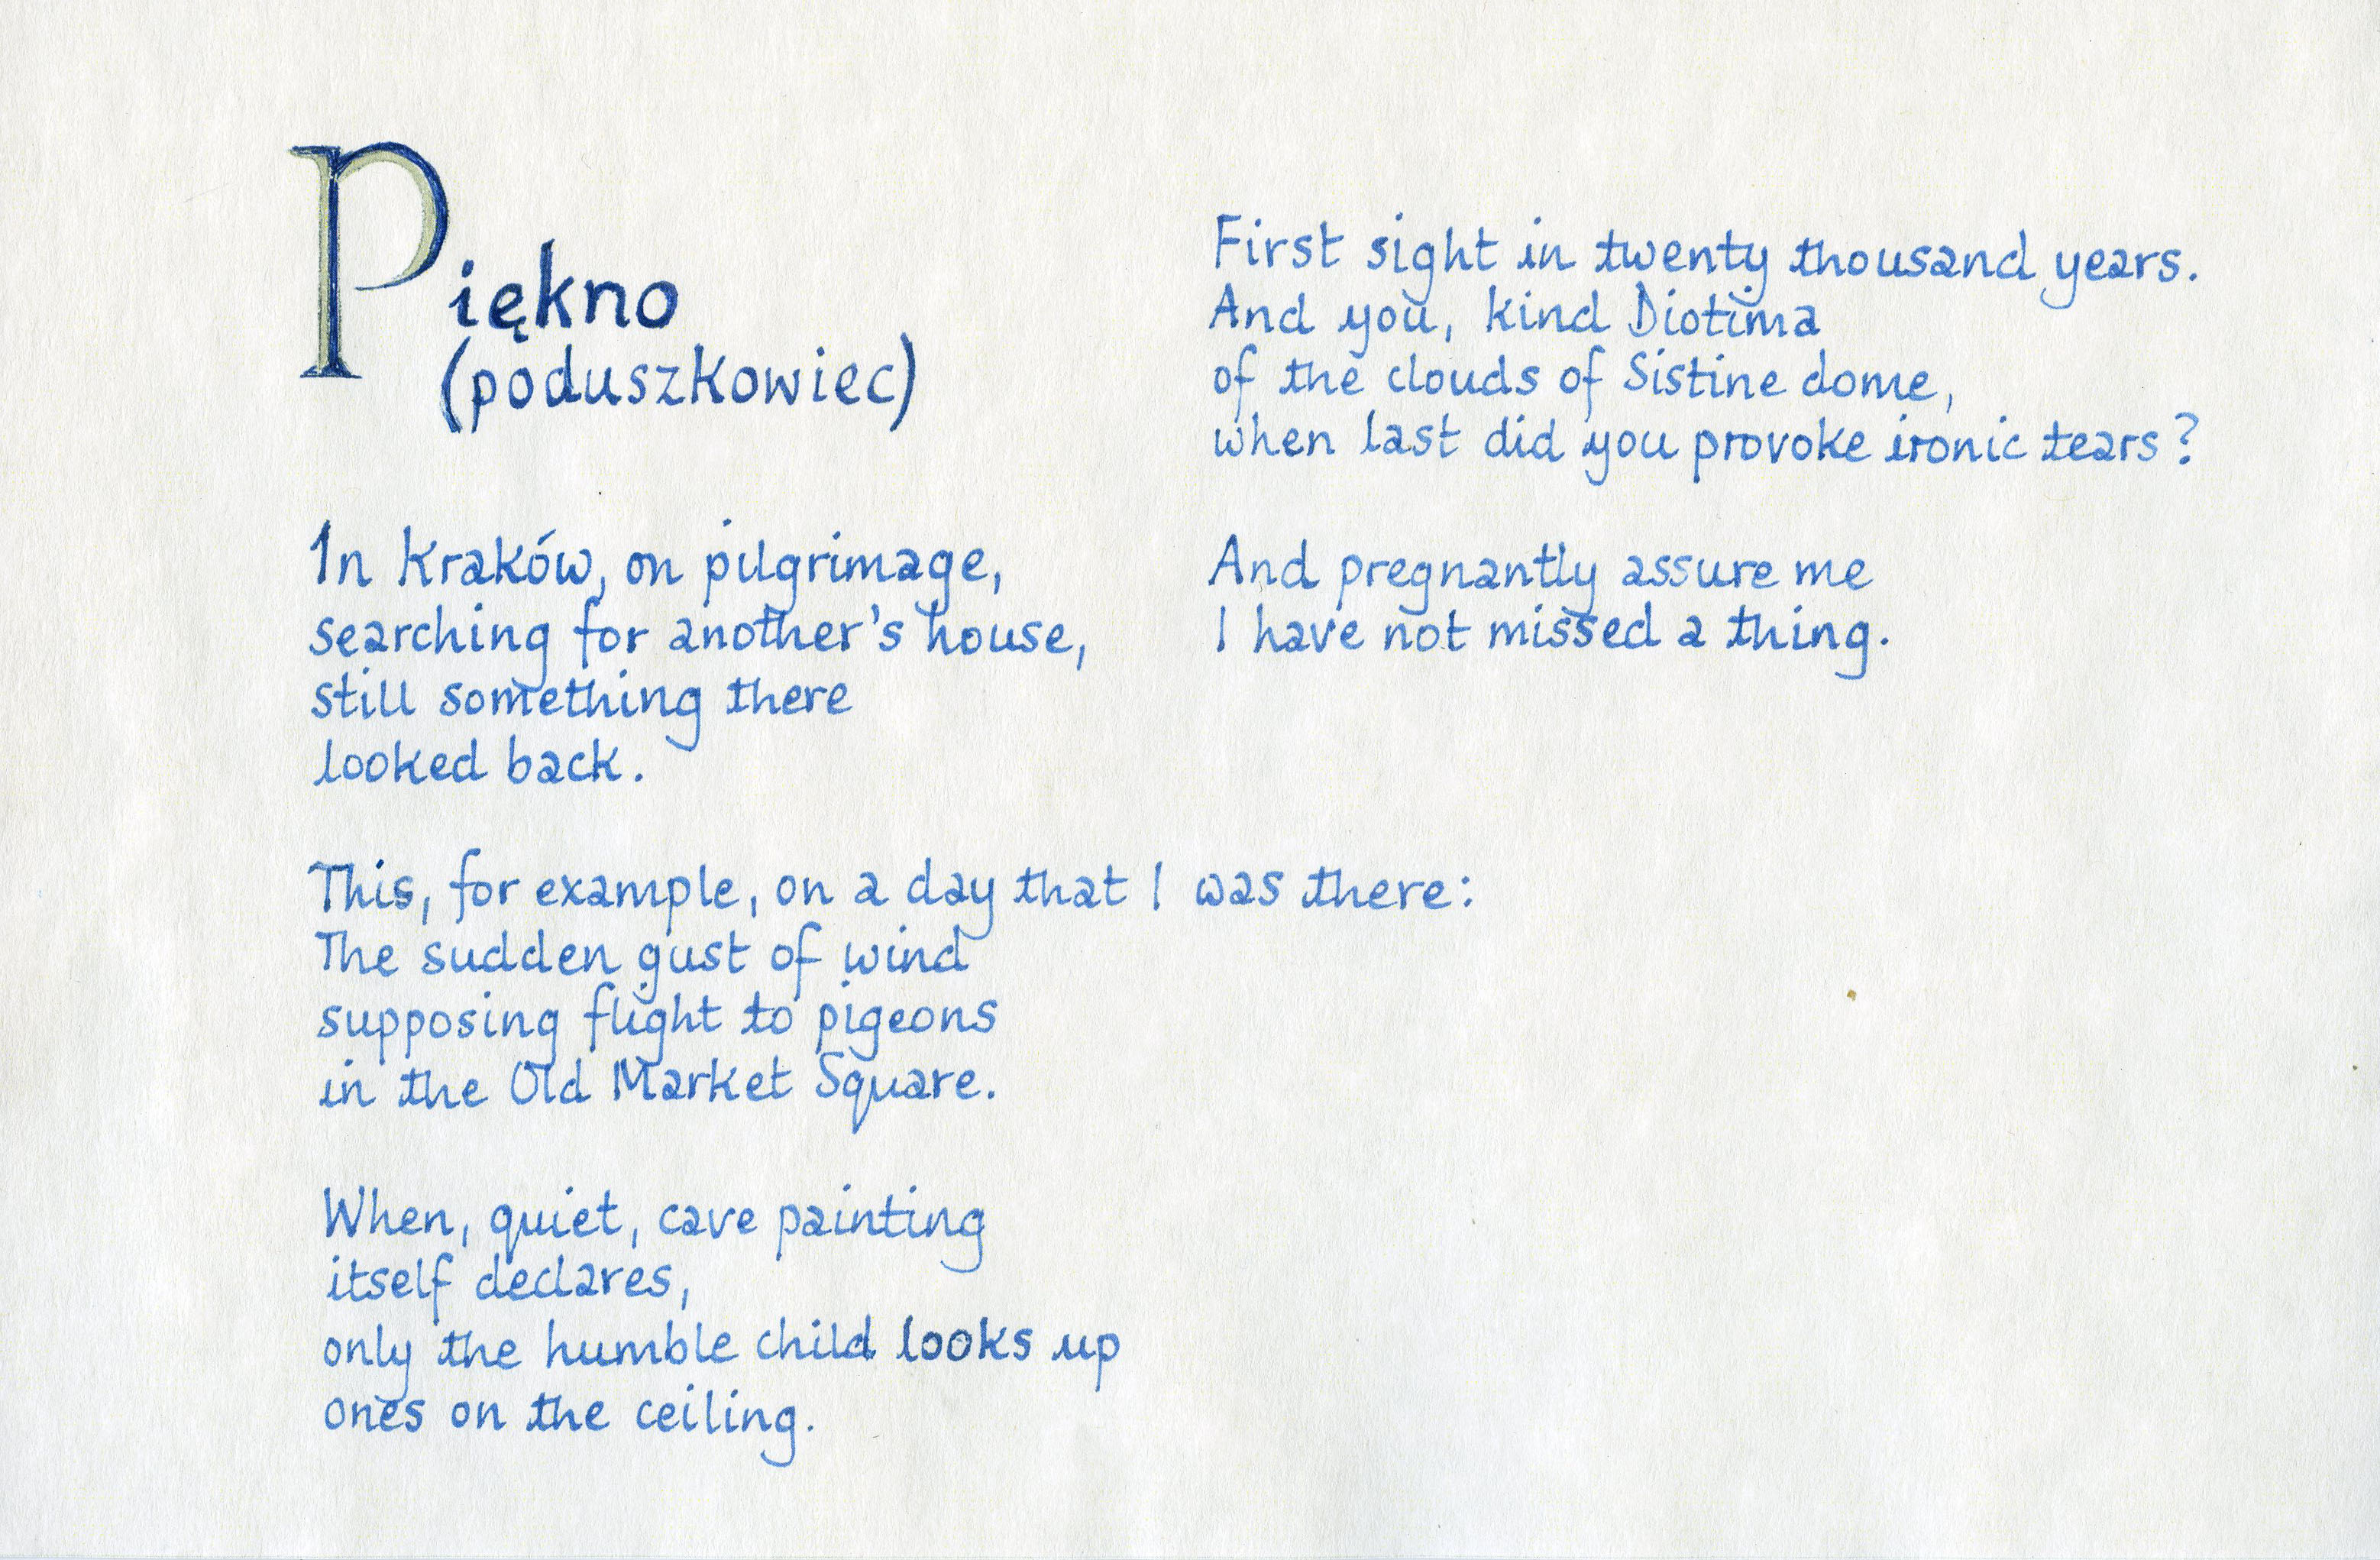 Piękno
(poduszkowiec)
In Kraków, on pilgrimage,
searching for another's house,
still something there
looked back.
This, for example, on a day that I was there:
The sudden gust of wind
supposing flight to pigeons
in the Old Market Square.
When, quiet, cave painting
itself declares,
only the humble child looks up
ones on the ceiling.
First sight in twenty thousand years.
And you, kind Diotima
of the clouds of Sistine dome,
when last did you provoke ironic tears?
And pregnantly assure me
I have not missed a thing.